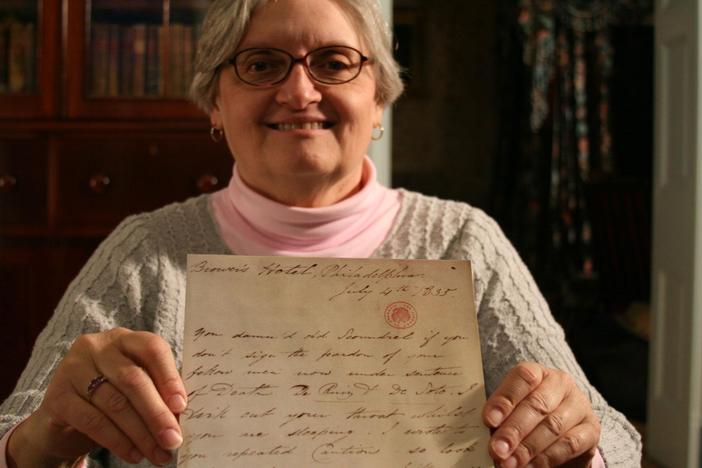 Brower's Hotel, Philadelphia.
July 4th 1835.
You damn'd old Scoundrel if you
don't sign the pardon of your
fellow men now under sentence
of Death De Ruiz & De Soto, I
will cut your throat whilst
you are sleeping. I wrote to
you repeated Cautions so look